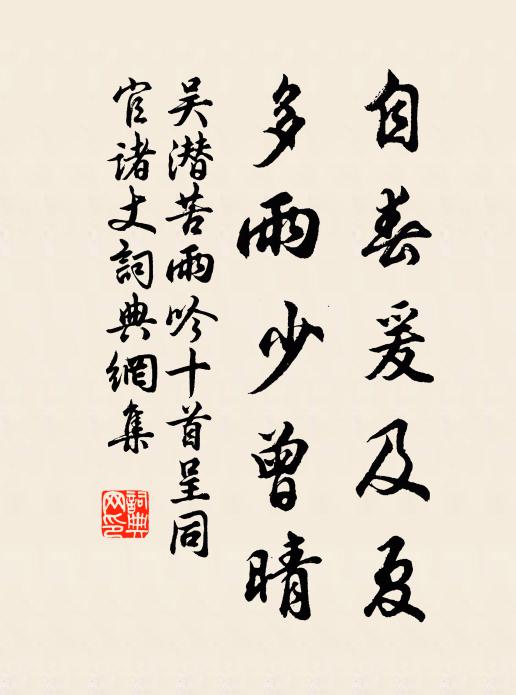 自春爰及夏
多雨少曾晴
吴潜苦雨吟十首呈同
官诸丈詞典網集
詞典网印